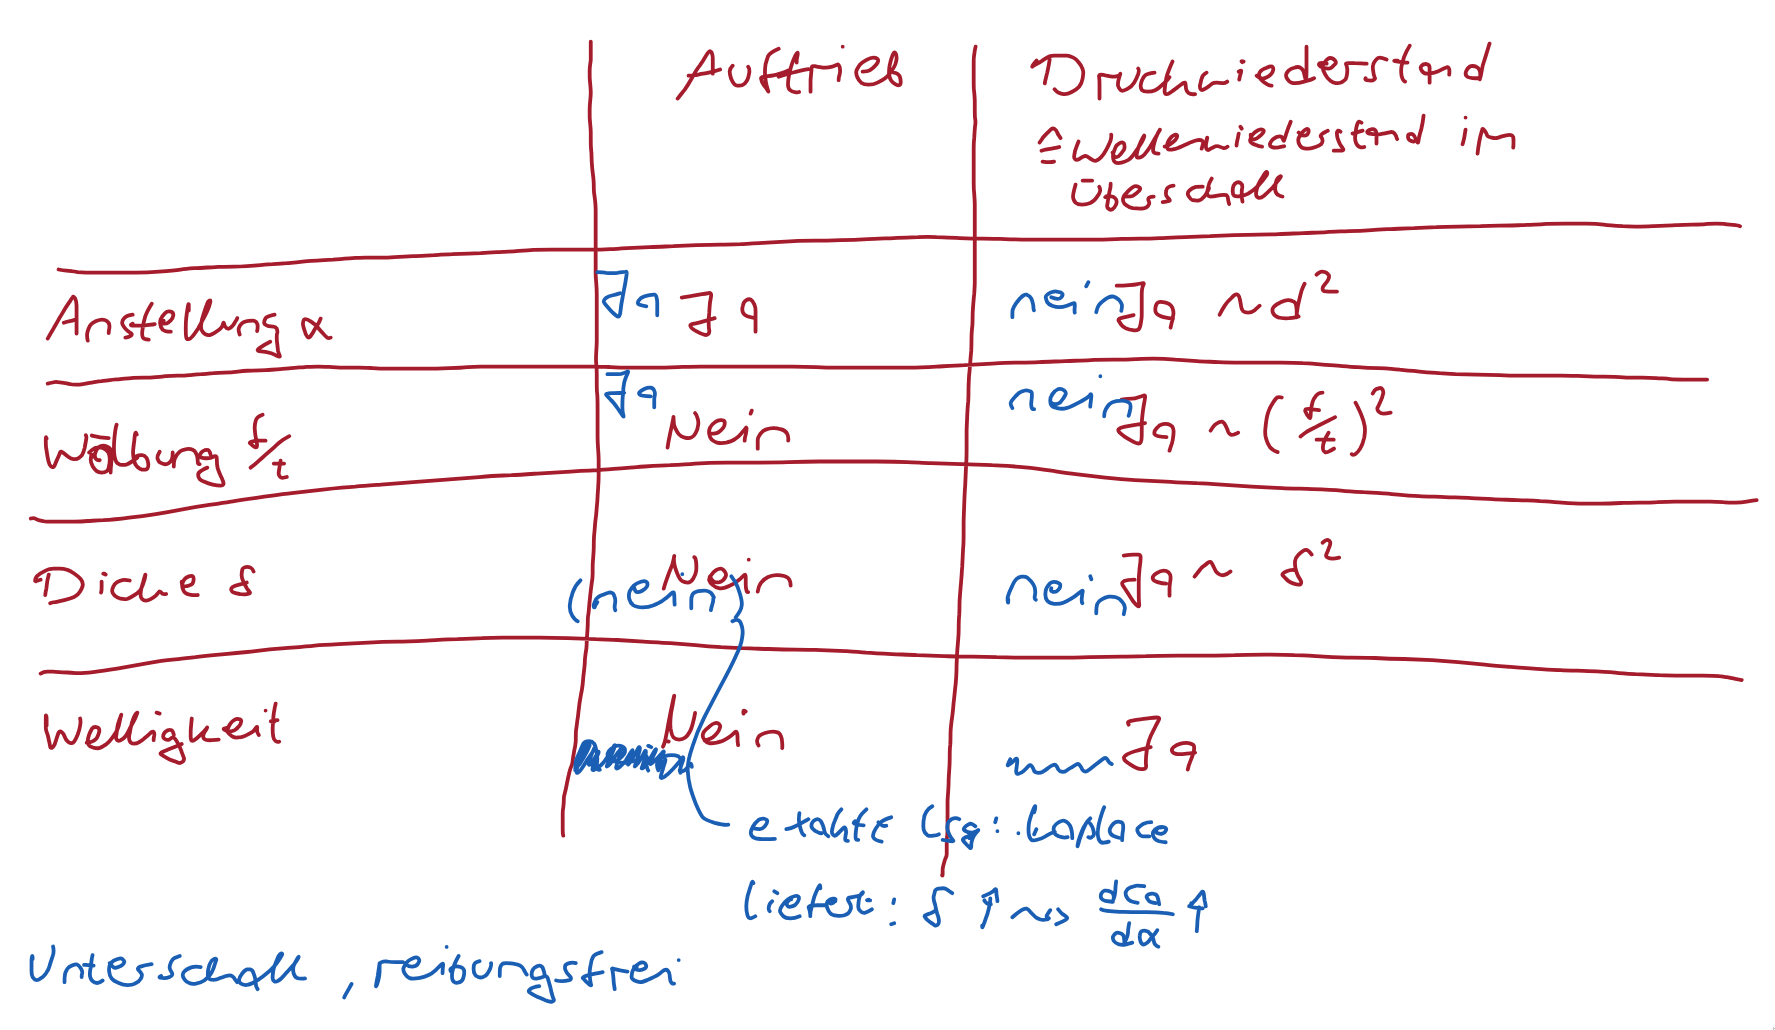 Auftrieb Druckwiederstand
≙ Wellenwiederstand im
Überschall
Anstellung α Ja Ja nein Ja ~ α²
Wölbung f/t Ja Nein nein Ja ~ (f/t)²
Dicke δ (nein) Nein nein Ja ~ δ²
Welligkeit Nein Ja
exakte Lsg: Laplace
liefert: δ ↑ ⇝ dca/dα ↑
Unterschall, reibungsfrei